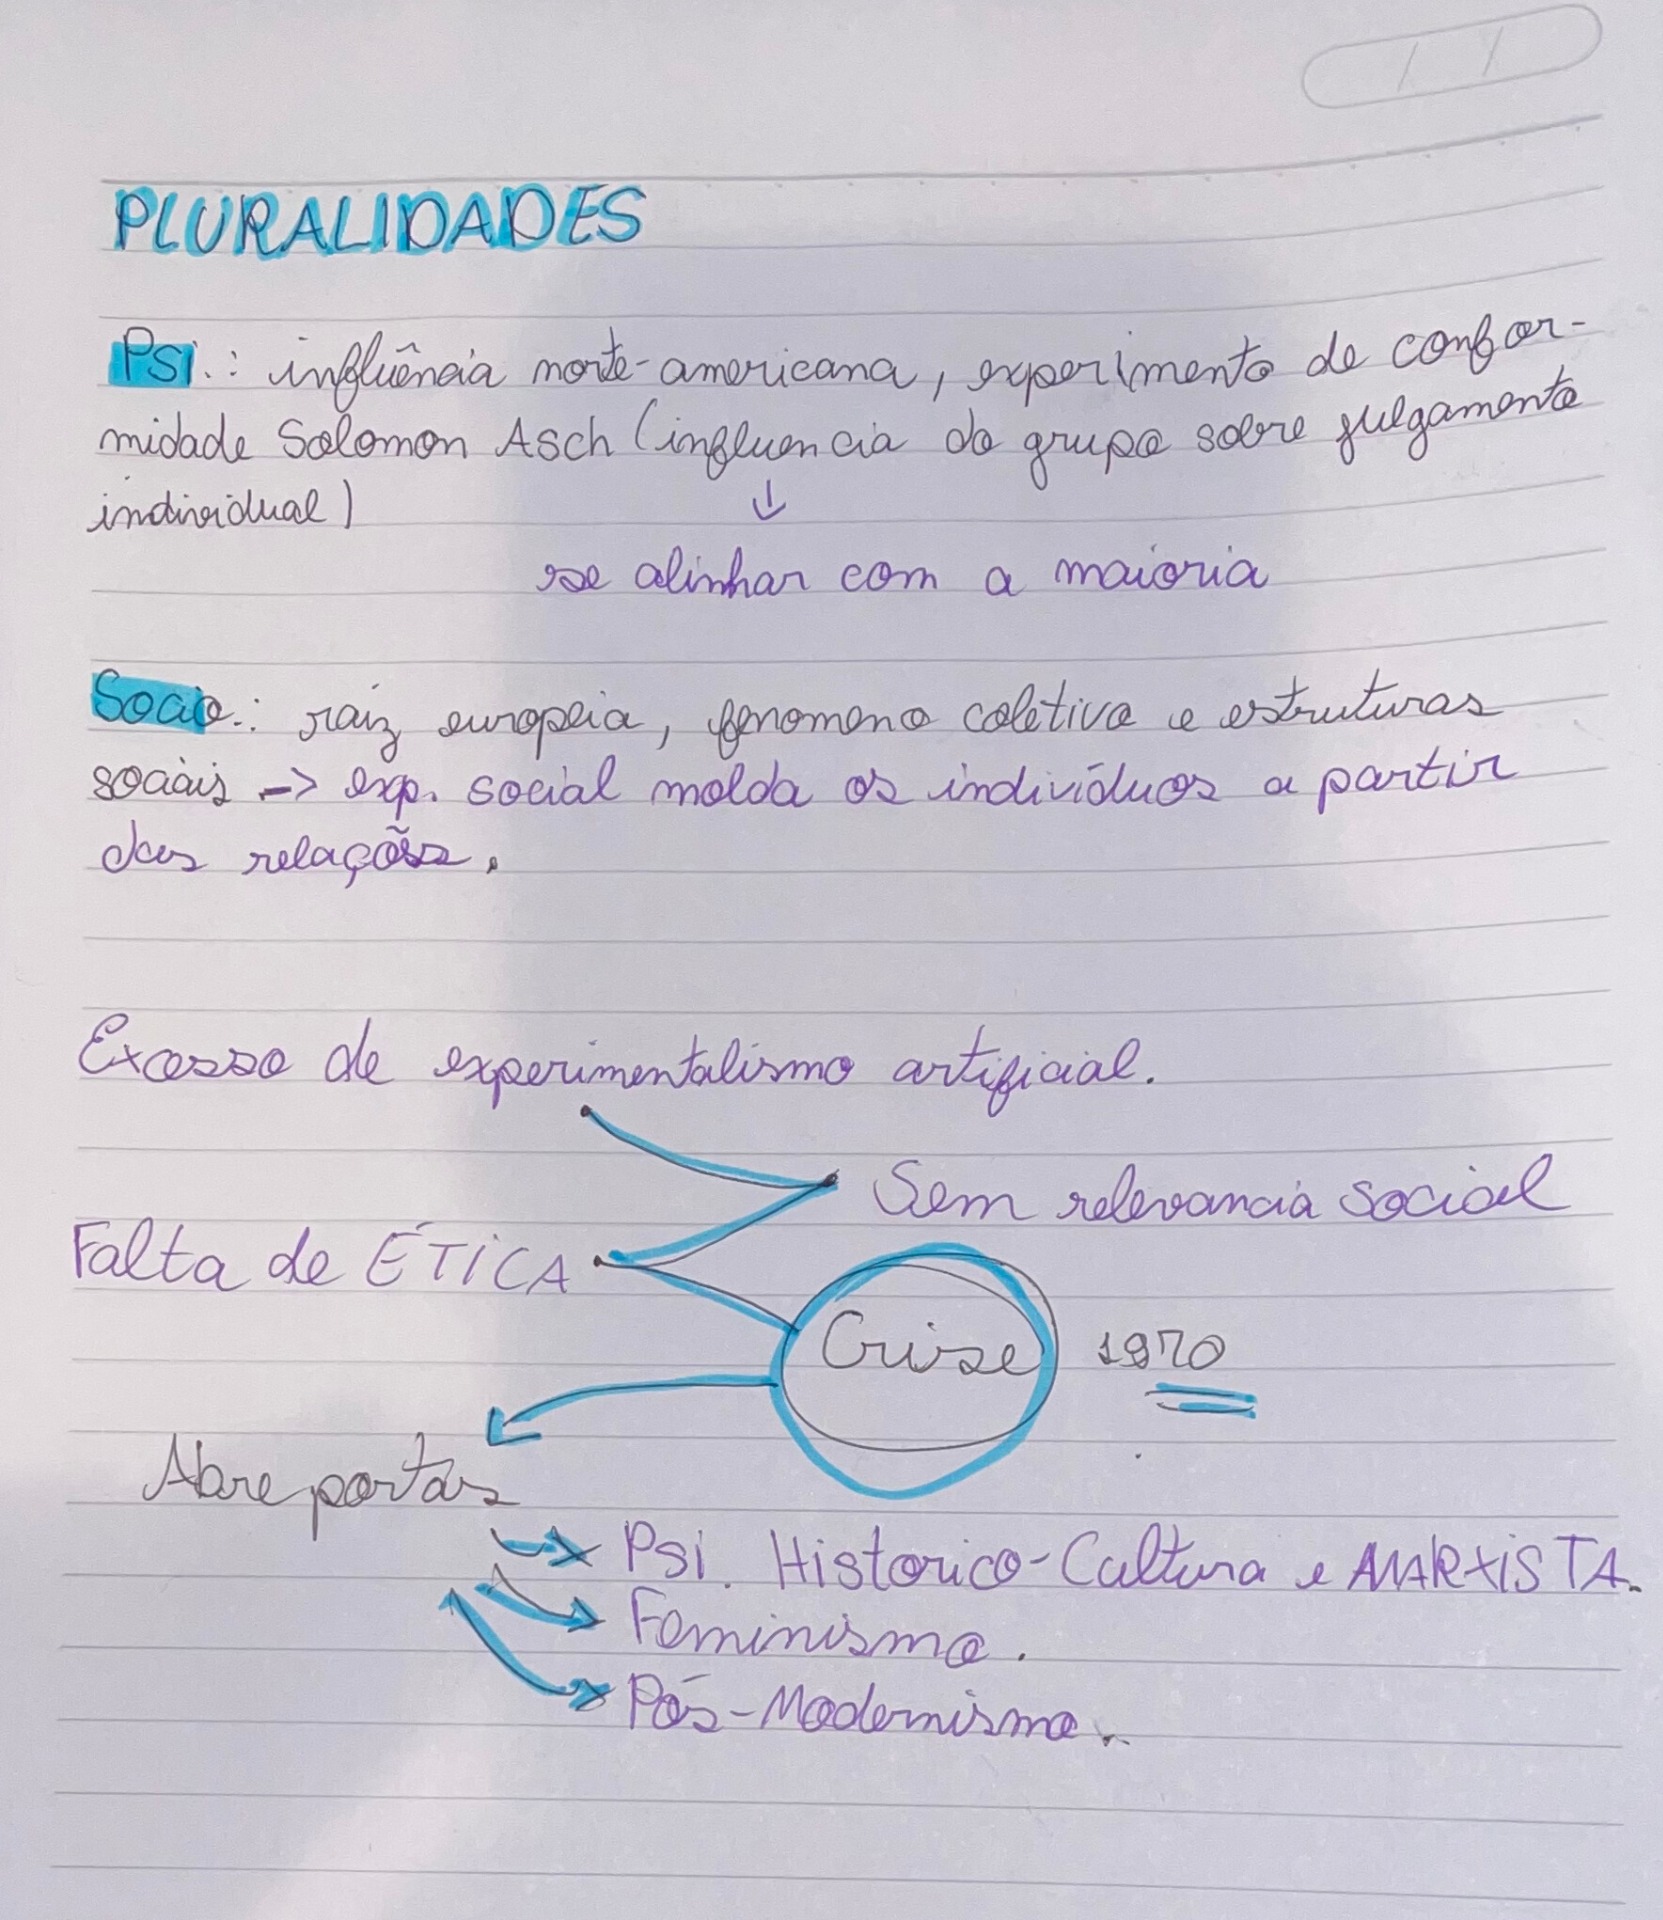 PLURALIDADES
Psi.: influência norte-americana, experimento de confor-
midade Solomon Asch (influencia do grupo sobre julgamento
individual)
↓
se alinhar com a maioria
Socio.: raiz europeia, fenomeno coletivo e estruturas
sociais -> exp. social molda os indivíduos a partir
das relações.
Excesso de experimentalismo artificial.
Sem relevancia social
Falta de ÉTICA
Crise 1970
Abre portas
Psi. Historico-Cultura e MARXISTA.
Feminismo.
Pós-Modernismo.